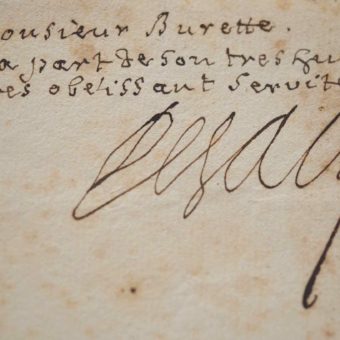 onsieur Burette.
a part de son tres hu
res obeissant servite